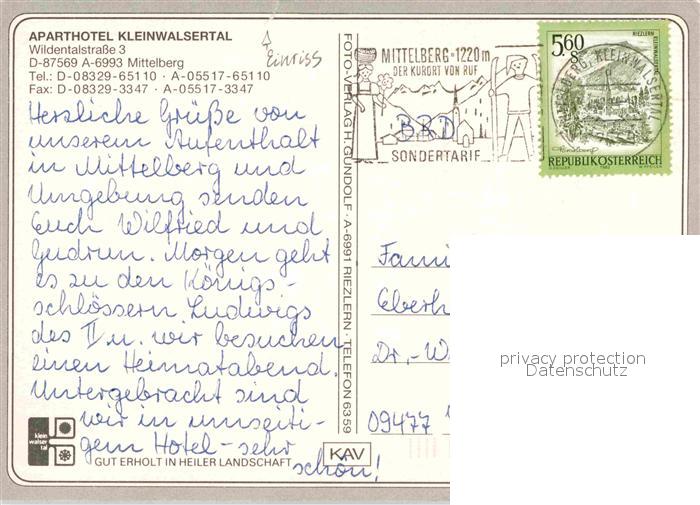 APARTHOTEL KLEINWALSERTAL
Wildentalstraße 3
D-87569 A-6993 Mittelberg
Tel.: D-08329-65110 · A-05517-65110
Fax: D-08329-3347 · A-05517-3347
Einriss
Herzliche Grüße von
unserem Aufenthalt
in Mittelberg und
Umgebung senden
Euch Wilfried und
Gudrun. Morgen geht
es zu den Königs-
schlössern Ludwigs
des II u. wir besuchen
einen Heimatabend.
Untergebracht sind
wir in umseiti-
gem Hotel - sehr
schön!
klein
walser
tal
GUT ERHOLT IN HEILER LANDSCHAFT
KAV
FOTO-VERLAG H. GUNDOLF · A-6991 RIEZLERN · TELEFON 6359
MITTELBERG · 1220 m
DER KURORT VON RUF
BRD
SONDERTARIF
5.60
RIEZLERN
KLEINWALSERTAL
REPUBLIK ÖSTERREICH
Fami
Eberh
Dr.-W
09477
privacy protection
Datenschutz